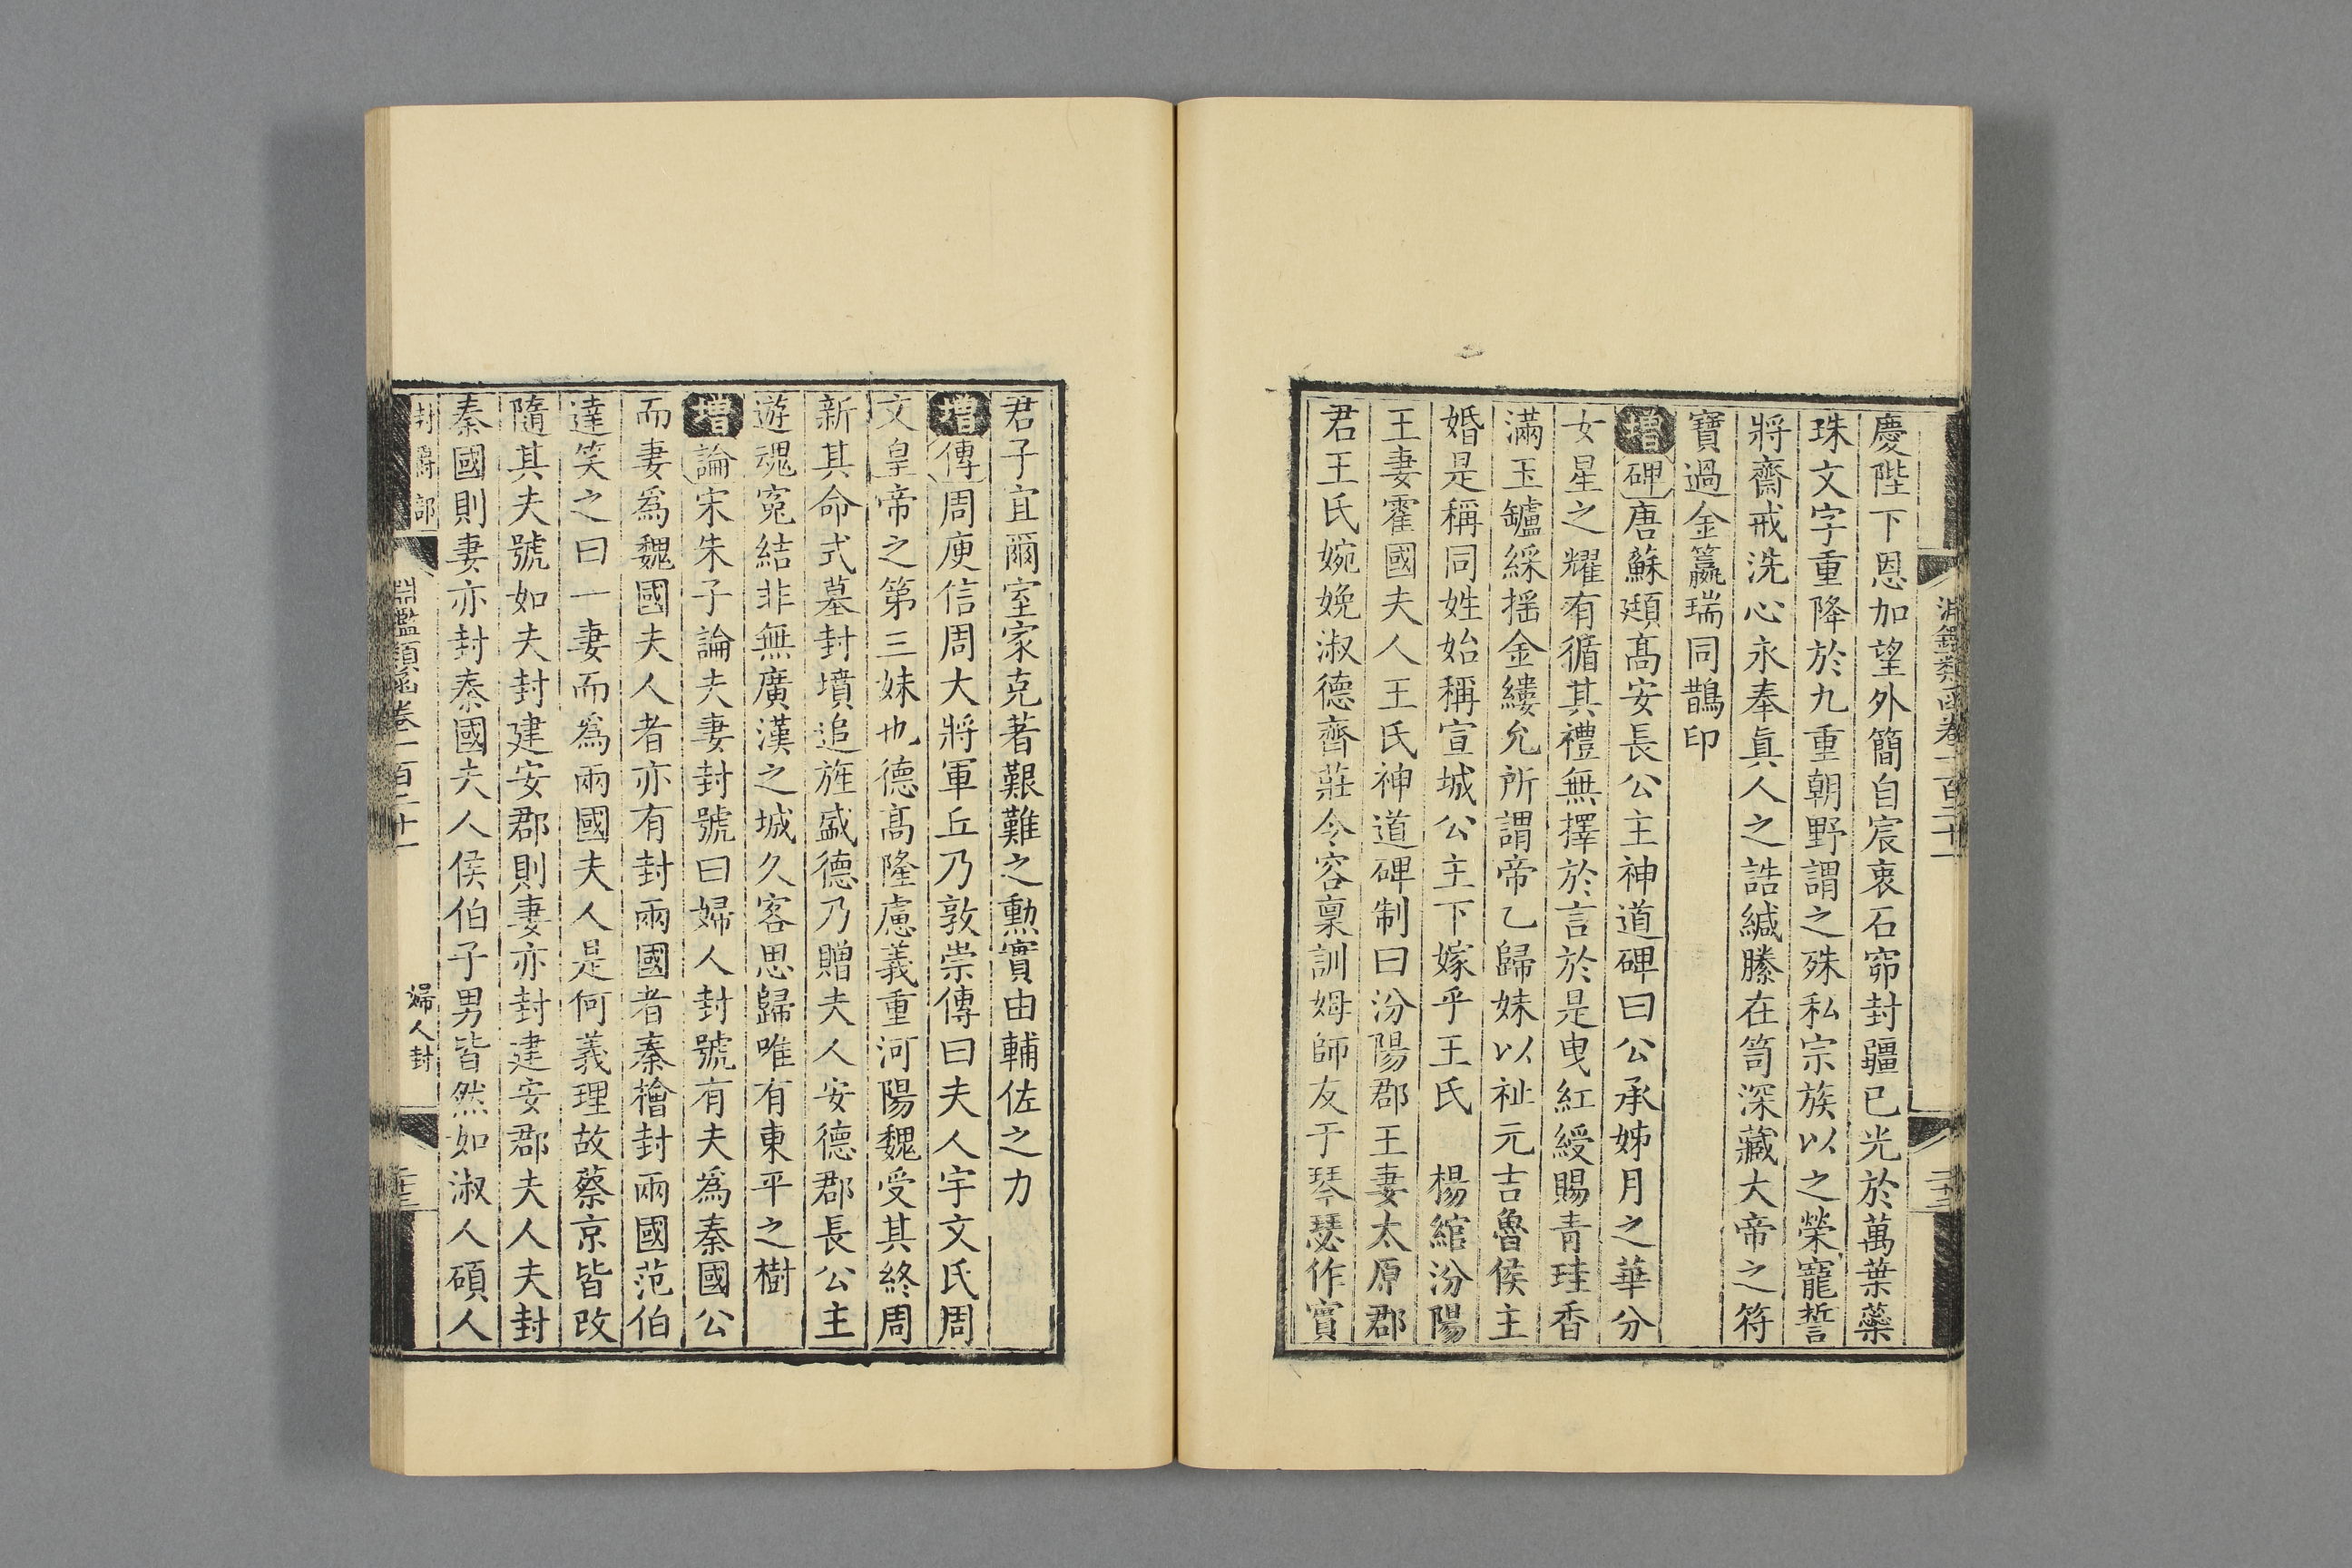 淵鑑類函卷一百二十一
慶陛下恩加望外簡自宸衷石窌封疆已光於萬葉蘂
珠文字重降於九重朝野謂之殊私宗族以之榮寵誓
將齋戒洗心永奉眞人之誥緘縢在笥深藏大帝之符
寶過金籯瑞同鵲印
增碑唐蘇頲高安長公主神道碑曰公承姊月之華分
女星之耀有循其禮無擇於言於是曳紅綬賜青珪香
滿玉鑪綵揺金縷允所謂帝乙歸妹以祉元吉魯侯主
婚是稱同姓始稱宣城公主下嫁乎王氏　楊綰汾陽
王妻霍國夫人王氏神道碑制曰汾陽郡王妻太原郡
君王氏婉娩淑德齊莊令容稟訓姆師友于琴瑟作賓
君子宜爾室家克著艱難之勲實由輔佐之力
增傳周庾信周大將軍丘乃敦崇傳曰夫人宇文氏周
文皇帝之第三妹也德高隆慮義重河陽魏受其終周
新其命式墓封墳追旌盛德乃贈夫人安德郡長公主
遊魂寃結非無廣漢之城久客思歸唯有東平之樹
增論宋朱子論夫妻封號曰婦人封號有夫爲秦國公
而妻爲魏國夫人者亦有封兩國者秦檜封兩國范伯
達笑之曰一妻而爲兩國夫人是何義理故蔡京皆改
隨其夫號如夫封建安郡則妻亦封建安郡夫人夫封
秦國則妻亦封秦國夫人侯伯子男皆然如淑人碩人
封爵部　淵鑑類函卷一百二十一　婦人封